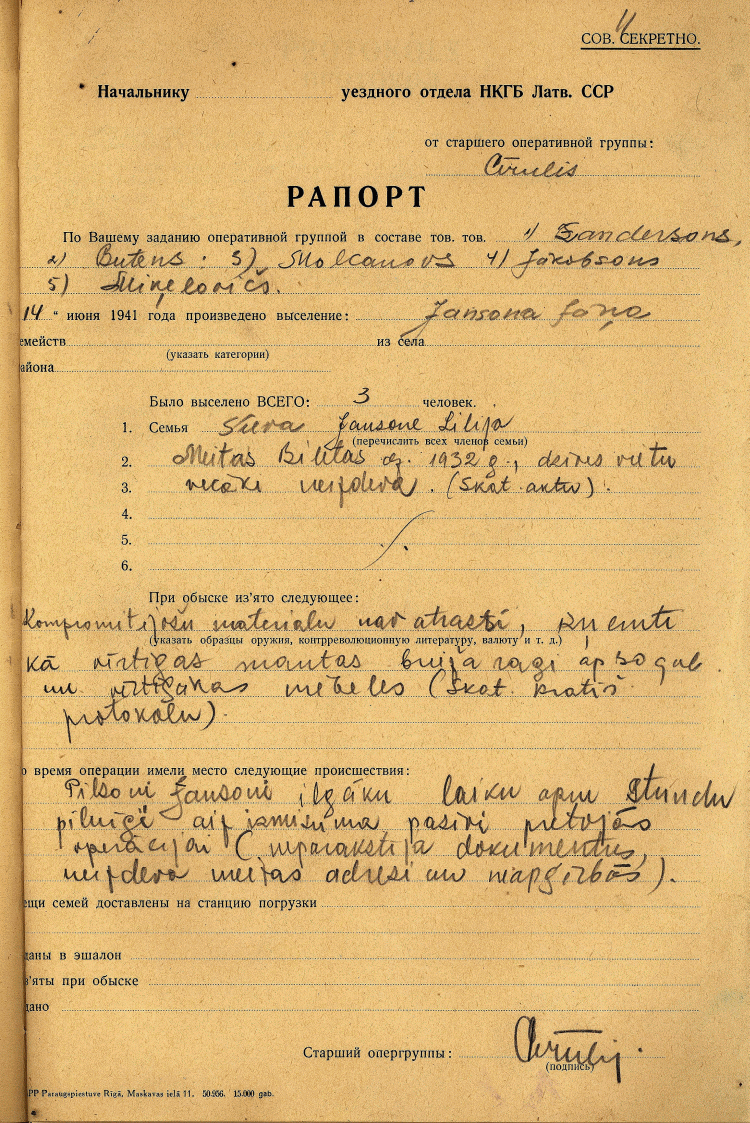 11
СОВ. СЕКРЕТНО.
Начальнику уездного отдела НКГБ Латв. ССР
от старшего оперативной группы:
Cīrulis
РАПОРТ
По Вашему заданию оперативной группой в составе тов. тов. 1) Sandersons,
2) Butens 3) Molčanovs 4) Jakobsons
5) Miķelovičs.
14 " июня 1941 года произведено выселение: Jansona Jāņa
емейств из села
(указать категории)
айона
Было выселено ВСЕГО: 3 человек.
1. Семья Sieva Jansone Lilija
(перечислить всех членов семьи)
2. Meitas Birutas dz. 1932 g., dzīves vietu
3. vecāki neizdeva. (Skat. aktu).
4.
5.
6.
При обыске из'ято следующее:
Kompromitējošu materialu nav atrasti, izņemti
(указать образцы оружия, контрреволюционную литературу, валюту и т. д.)
kā vērtīgas mantas briežā ragi ap 30 gab.
un vērtīgākas mēbeles (Skat. kratīš.
protokolu).
о время операции имели место следующие происшествия:
Pilsoņi Jansoni ilgāku laiku apm stundu
pilnīgi aiz izmisuma pasīvi pretojās
operācijai (neparakstīja dokumentus,
neizdeva meitas adresi un neapģērbās).
ещи семей доставлены на станцию погрузки
даны в эшалон
'яты при обыске
дано
Старший опергруппы: Cīrulis
(подпись)
PP Paraugspiestuve Rīgā, Maskavas ielā 11. 50.956. 15.000 gab.